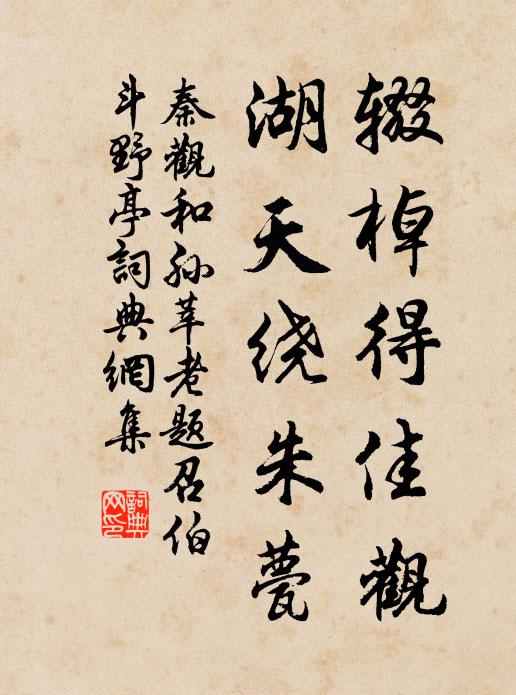 辍棹得佳觀
湖天绕朱甍
秦觀和孙莘老题召伯
斗野亭詞典網集
詞典
网印